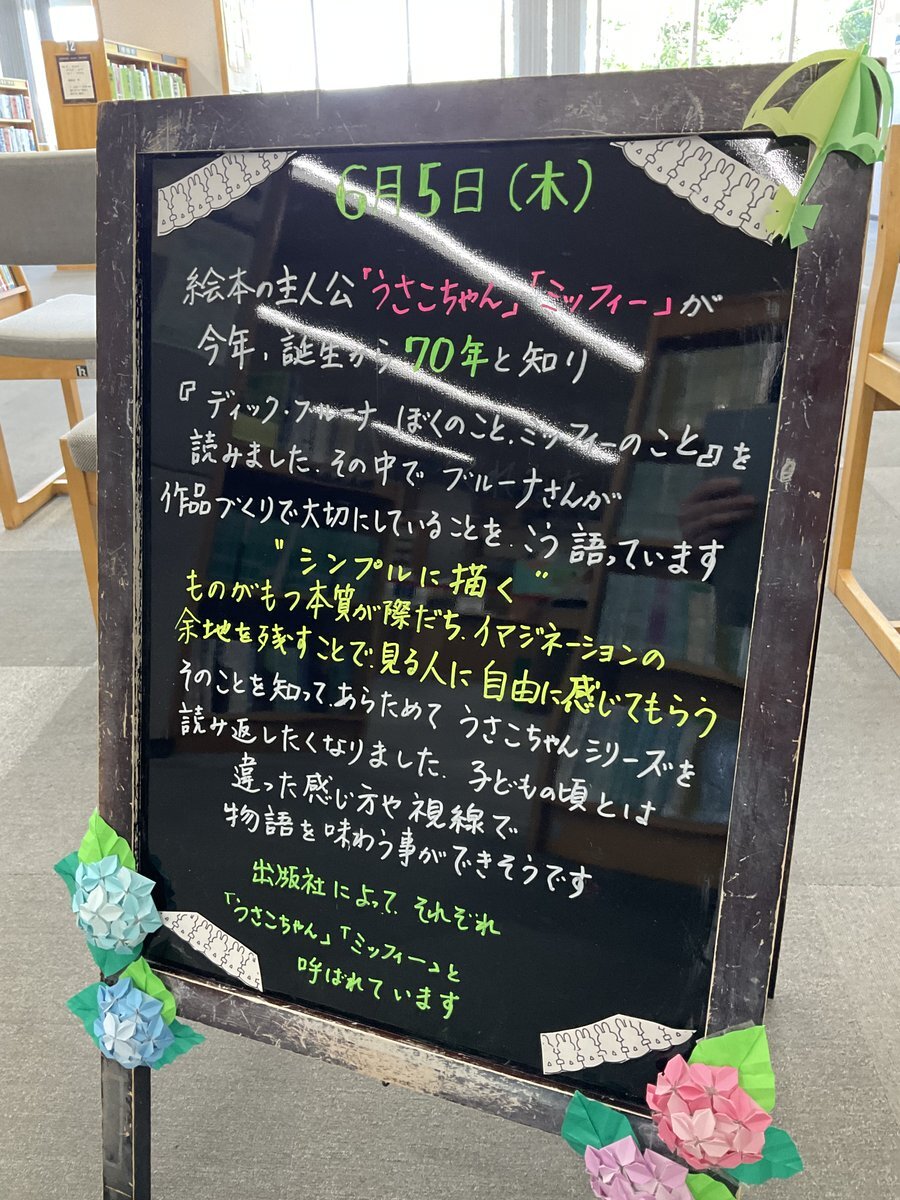 6月5日(木)
絵本の主人公「うさこちゃん」「ミッフィー」が
今年、誕生から70年と知り
『ディック・ブルーナ ぼくのこと、ミッフィーのこと』を
読みました。その中で ブルーナさんが
作品づくりで大切にしていることを、こう語っています
"シンプルに描く"
ものがもつ本質が際だち、イマジネーションの
余地を残すことで、見る人に自由に感じてもらう
そのことを知って、あらためて うさこちゃんシリーズを
読み返したくなりました。子どもの頃とは
違った感じ方や視線で
物語を味わう事ができそうです
出版社によって、それぞれ
「うさこちゃん」「ミッフィー」と
呼ばれています
12